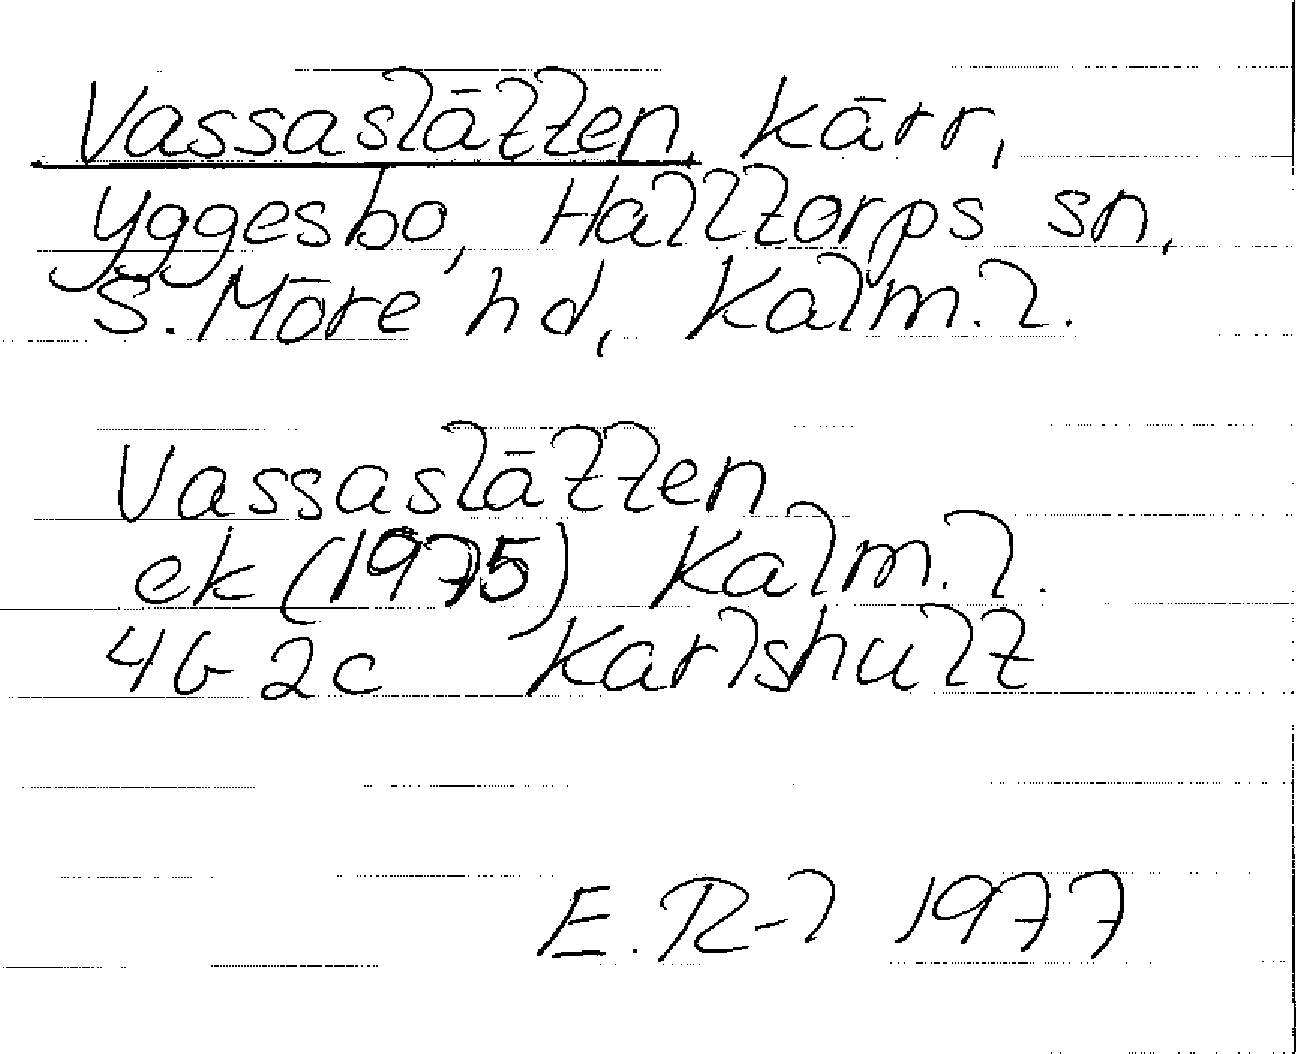 Vassaslätten, kärr,
Yggesbo, Halltorps sn,
S. Möre hd, Kalm. l.
Vassaslätten
ek (1975) Kalm. l.
4G 2c Karlshult
E. R-l 1977